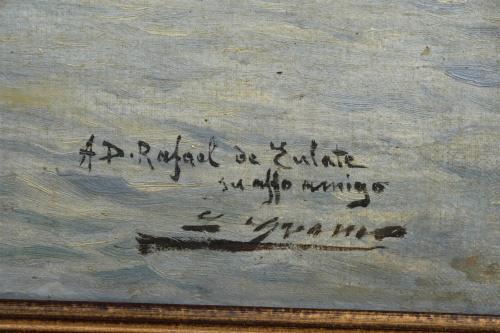 A D. Rafael de Eulate
su affo amigo